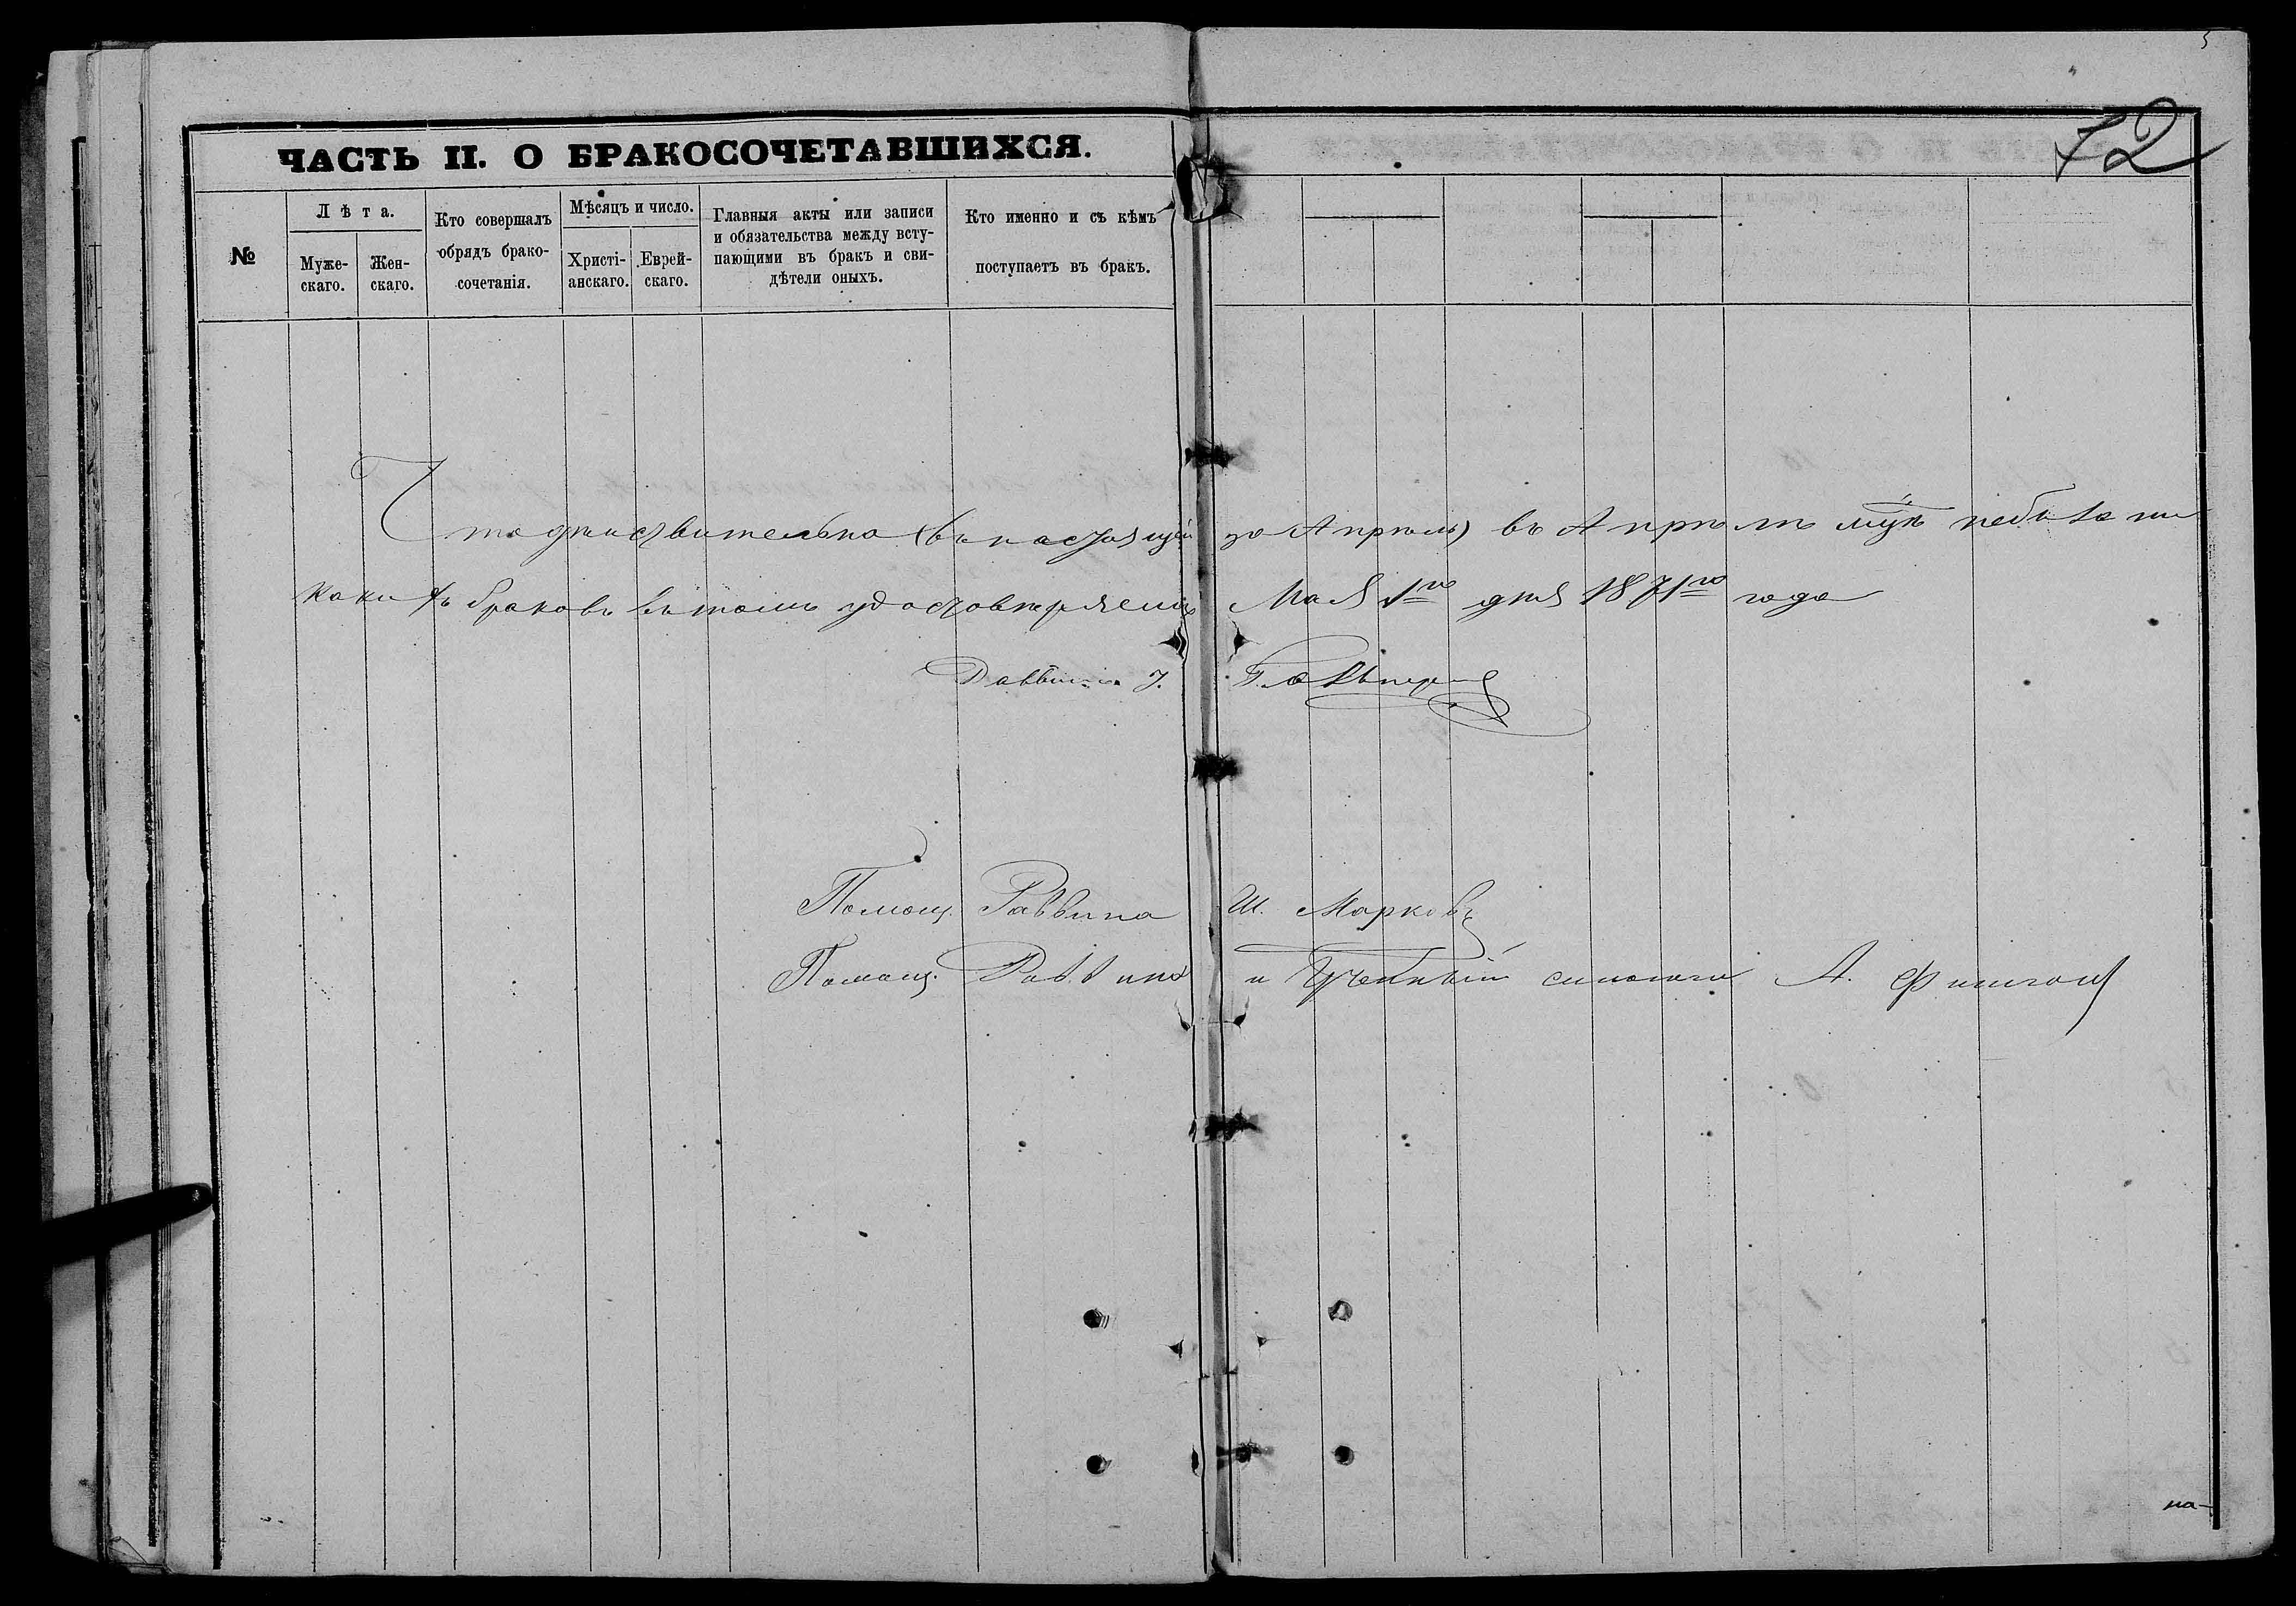 5
72
ЧАСТЬ II. О БРАКОСОЧЕТАВШИХСЯ.
№
Лѣта.
Муже-
скаго.
Жен-
скаго.
Кто совершалъ
обрядъ брако-
сочетанія.
Мѣсяцъ и число.
Христі-
анскаго.
Еврей-
скаго.
Главныя акты или записи
и обязательства между всту-
пающими въ бракъ и сви-
дѣтели оныхъ.
Кто именно и съ кѣмъ
поступаетъ въ бракъ.
Что дѣйствительно (въ настоящей за Апрѣль) въ Апрѣлѣ м҃цѣ небыло ни
какихъ браковъ въ томъ удостовѣряемъ Мая 1го дня 1871го года
Раввинъ Гальперинъ
Помощ. Раввина Ш. Марковъ
Помощ. Раввина и Ученный синагоги А.
на-